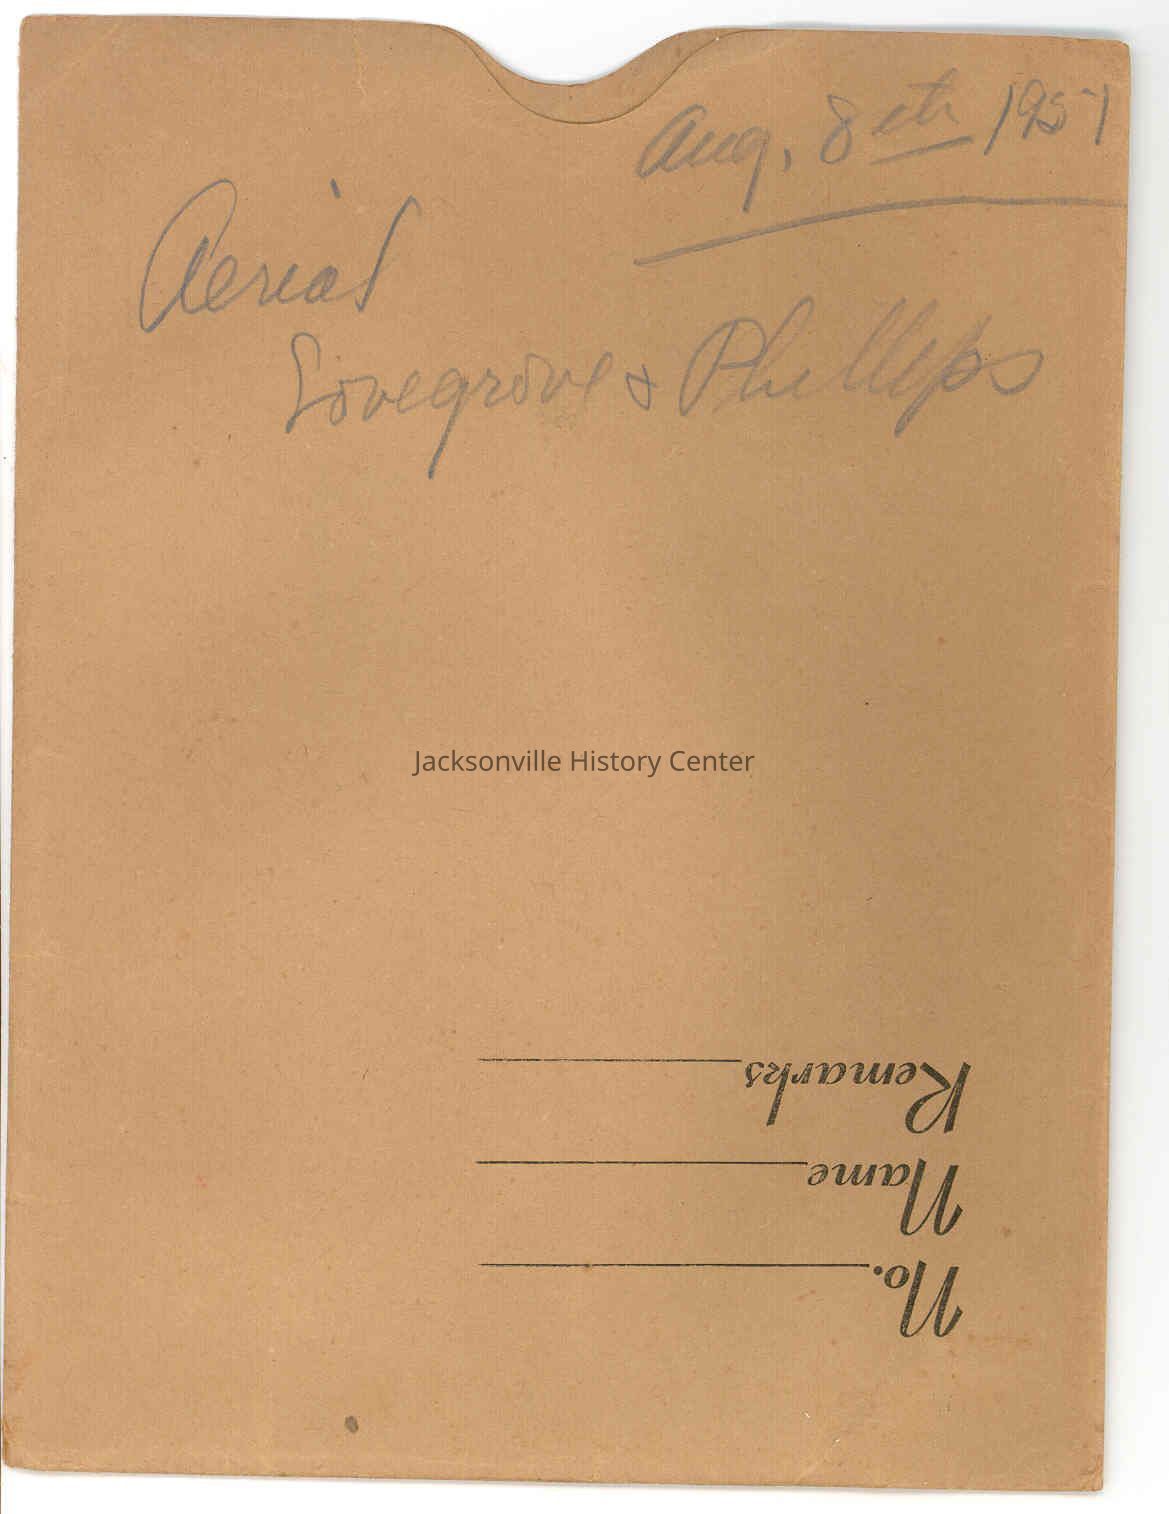 Aug. 8th 1951
Aerial
Lovegrove & Phillips
Jacksonville History Center
Remarks
Name
No.